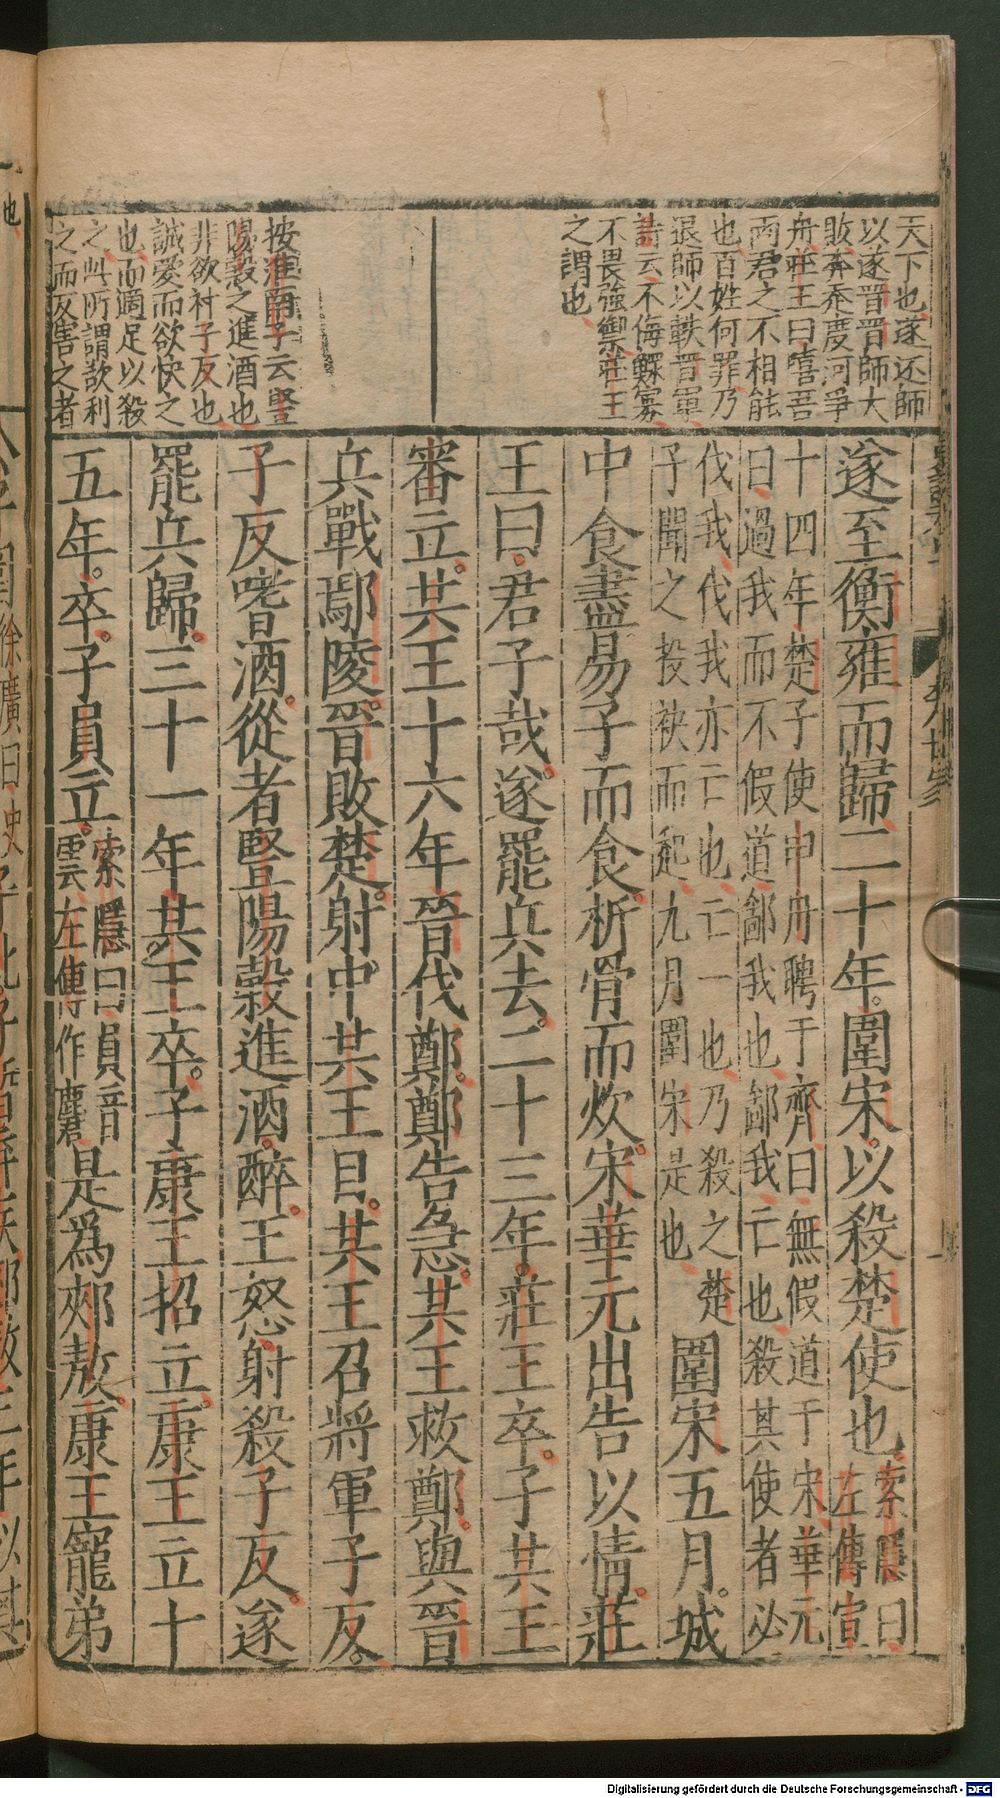 天下也遂还師
以遂晋晋師大
敗奔走度河爭
舟莊王曰嘻吾
兩君之不相能
也百姓何罪乃
退師以軼晋軍
詩云不侮鰥寡
不畏強禦莊王
之謂也
按淮南子云豎
陽穀之進酒也
非欲禍子反也
誠愛而欲快之
也而適足以殺
之此所謂欲利
之而反害之者
遂至衡雍而歸二十年圍宋以殺楚使也索隱曰左傳宣
十四年楚子使申舟聘于齊曰無假道于宋華元
曰過我而不假道鄙我也鄙我亡也殺其使者必
伐我伐我亦亡也亡一也乃殺之楚
子聞之投袂而起九月圍宋是也圍宋五月城
中食盡易子而食析骨而炊宋華元出告以情莊
王曰君子哉遂罷兵去二十三年莊王卒子共王
審立共王十六年晉伐鄭鄭告急共王救鄭與晉
兵戰鄢陵晉敗楚射中共王目共王召將軍子反
子反嗜酒從者豎陽穀進酒醉王怒射殺子反遂
罷兵歸三十一年共王卒子康王招立康王立十
五年卒子員立索隱曰員音雲左傳作麏是爲郟敖康王寵弟
Digitalisierung gefördert durch die Deutsche Forschungsgemeinschaft - DFG